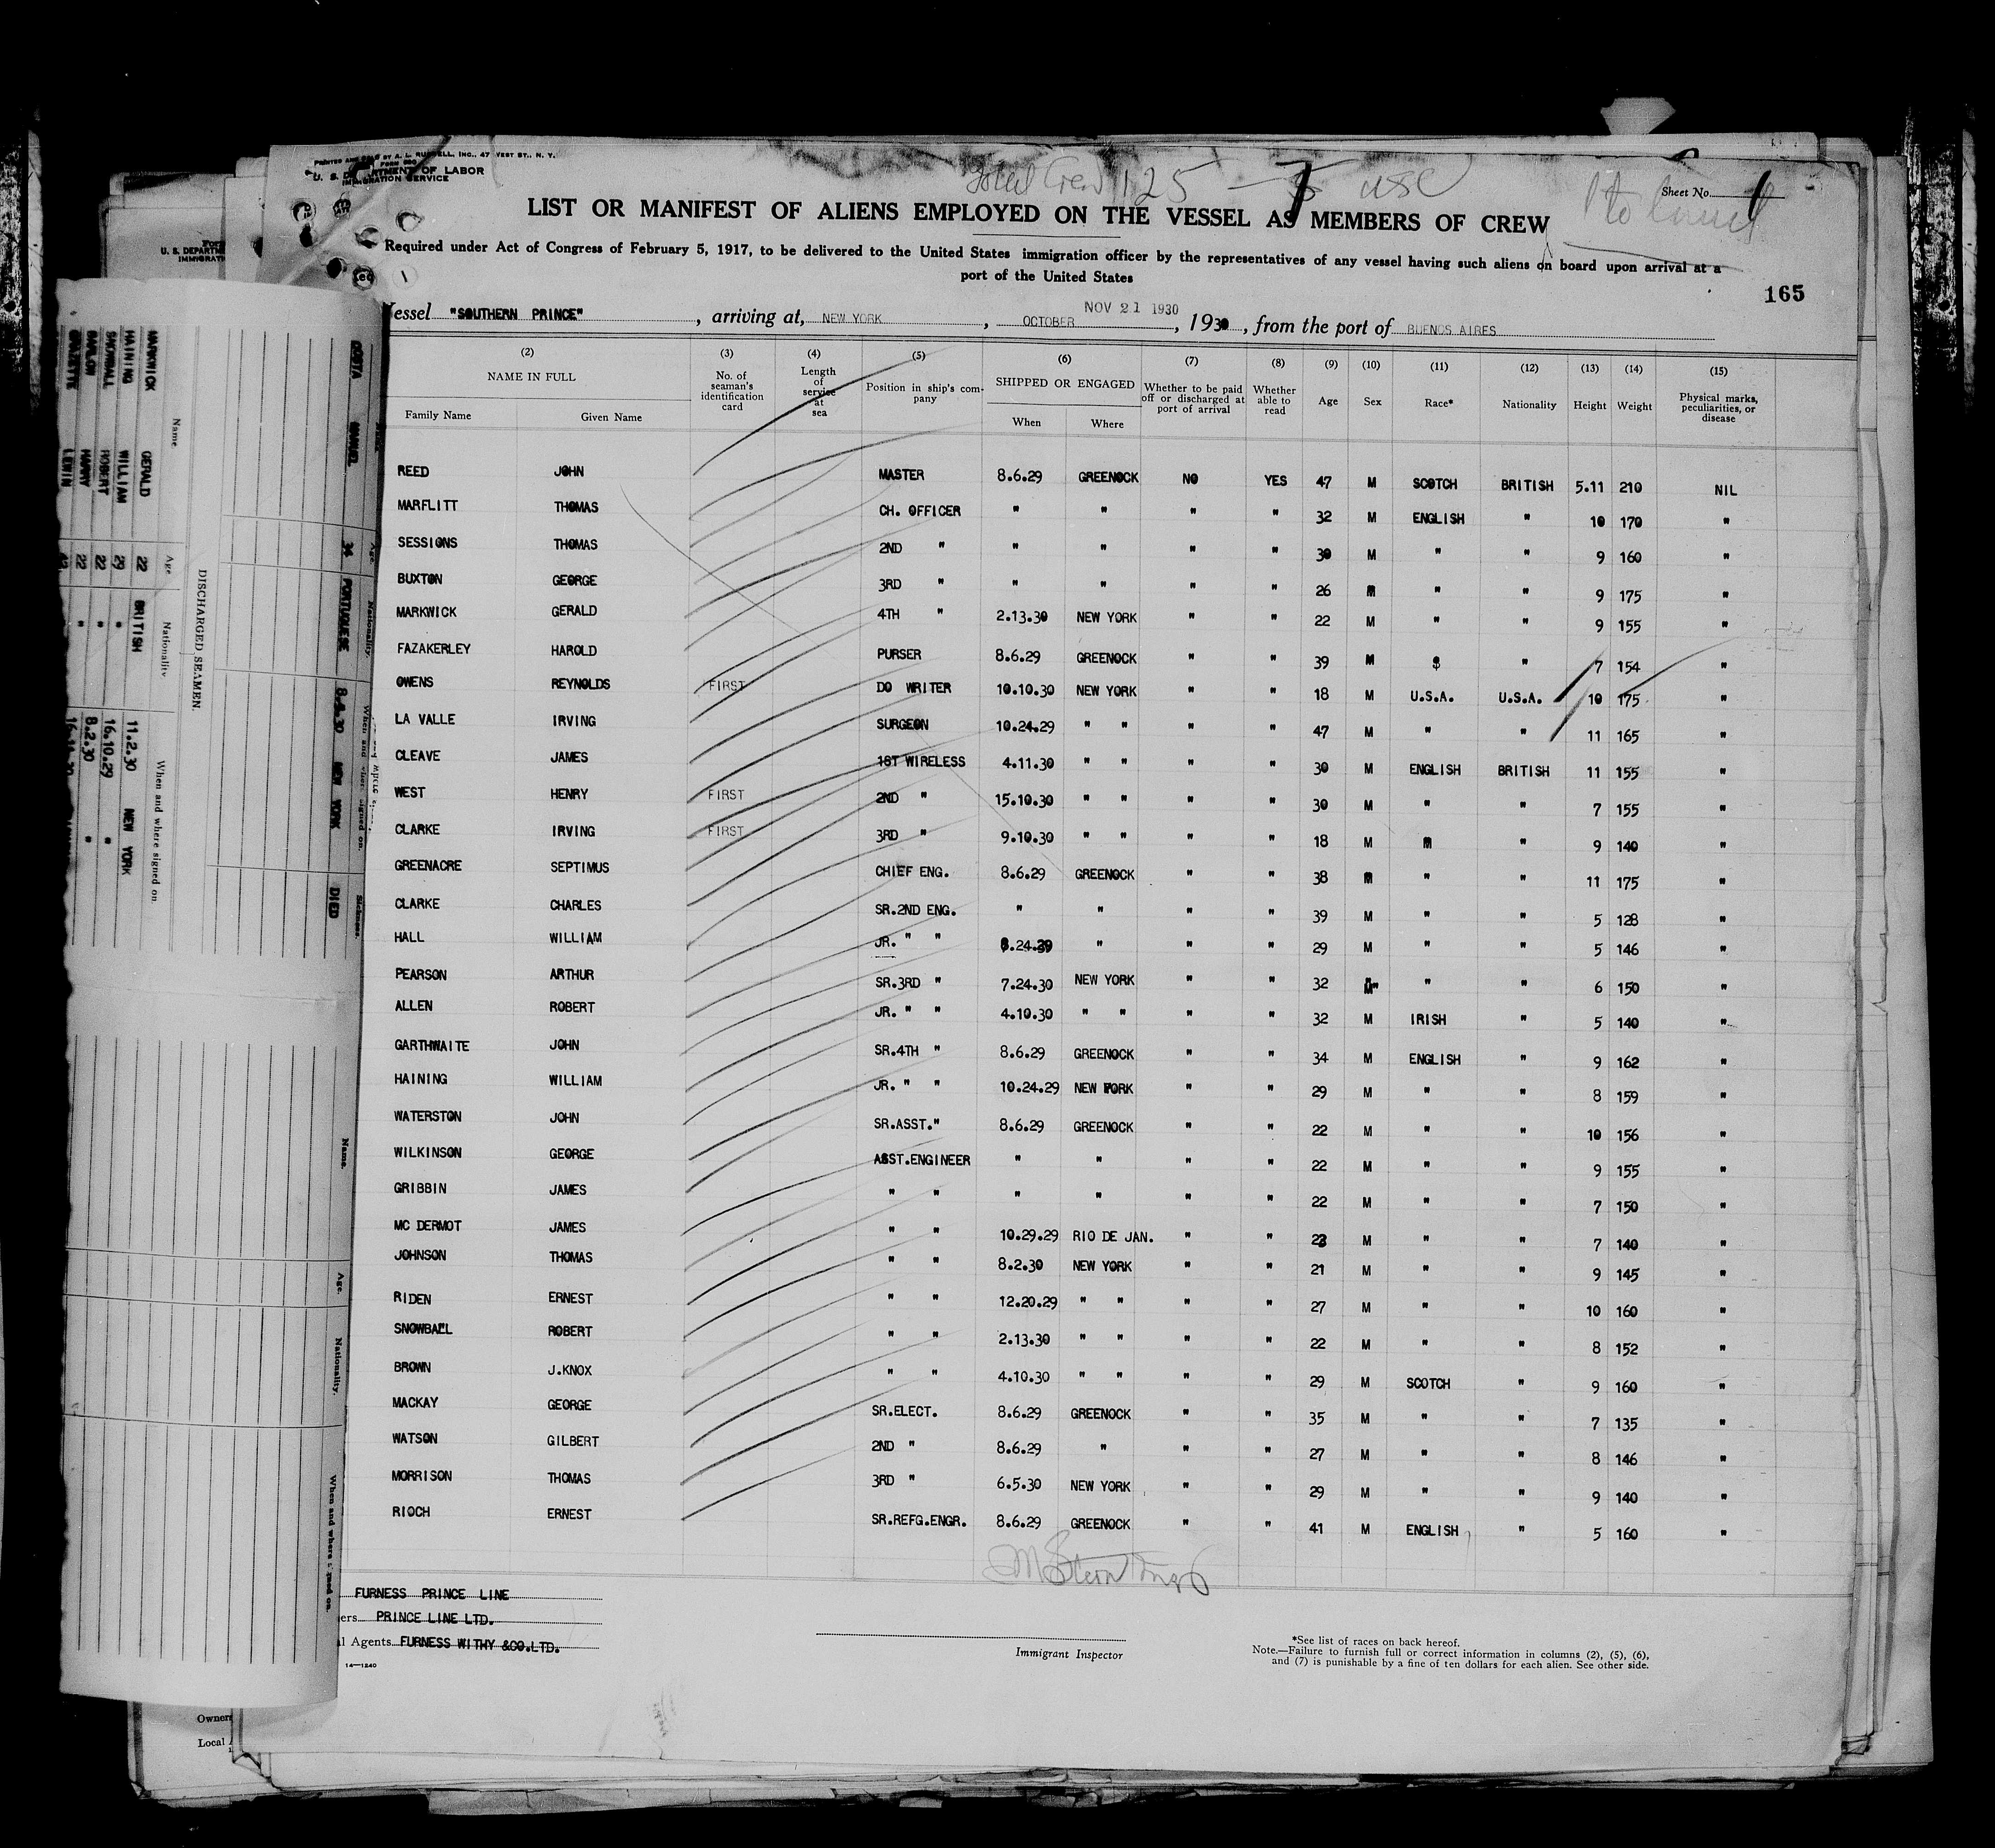 PRINTED AND SOLD BY A. L. RUSSELL, INC., 47 WEST ST., N. Y.
U. S. DEPARTMENT OF LABOR
IMMIGRATION SERVICE
Total Crew 125 USC
Sheet No. 1
LIST OR MANIFEST OF ALIENS EMPLOYED ON THE VESSEL AS MEMBERS OF CREW
Required under Act of Congress of February 5, 1917, to be delivered to the United States immigration officer by the representatives of any vessel having such aliens on board upon arrival at a
port of the United States
165
Vessel "SOUTHERN PRINCE", arriving at, NEW YORK, OCTOBER NOV 21 1930, 1930, from the port of BUENOS AIRES
(2) (3) (4) (5) (6) (7) (8) (9) (10) (11) (12) (13) (14) (15)
NAME IN FULL No. of seaman's identification card Length of service at sea Position in ship's company SHIPPED OR ENGAGED Whether to be paid off or discharged at port of arrival Whether able to read Age Sex Race* Nationality Height Weight Physical marks, peculiarities, or disease
Family Name Given Name When Where
REED JOHN MASTER 8.6.29 GREENOCK NO YES 47 M SCOTCH BRITISH 5.11 210 NIL
MARFLITT THOMAS CH. OFFICER " " " " 32 M ENGLISH " 10 170 "
SESSIONS THOMAS 2ND " " " " " 30 M " " 9 160 "
BUXTON GEORGE 3RD " " " " " 26 M " " 9 175 "
MARKWICK GERALD 4TH " 2.13.30 NEW YORK " " 22 M " " 9 155 "
FAZAKERLEY HAROLD PURSER 8.6.29 GREENOCK " " 39 M " 7 154 "
OWENS REYNOLDS FIRST DO WRITER 10.10.30 NEW YORK " " 18 M U.S.A. U.S.A. 10 175 "
LA VALLE IRVING SURGEON 10.24.29 " " " " 47 M " " 11 165 "
CLEAVE JAMES 1ST WIRELESS 4.11.30 " " " " 30 M ENGLISH BRITISH 11 155 "
WEST HENRY FIRST 2ND " 15.10.30 " " " " 30 M " " 7 155 "
CLARKE IRVING FIRST 3RD " 9.10.30 " " " " 18 M " " 9 140 "
GREENACRE SEPTIMUS CHIEF ENG. 8.6.29 GREENOCK " " 38 M " " 11 175 "
CLARKE CHARLES SR.2ND ENG. " " " " 39 M " " 5 128 "
HALL WILLIAM JR. " " 8.24.29 " " " 29 M " " 5 146 "
PEARSON ARTHUR SR.3RD " 7.24.30 NEW YORK " " 32 M " " 6 150 "
ALLEN ROBERT JR. " " 4.10.30 " " " " 32 M IRISH " 5 140 "
GARTHWAITE JOHN SR.4TH " 8.6.29 GREENOCK " " 34 M ENGLISH " 9 162 "
HAINING WILLIAM JR. " " 10.24.29 NEW YORK " " 29 M " " 8 159 "
WATERSTON JOHN SR.ASST." 8.6.29 GREENOCK " " 22 M " " 10 156 "
WILKINSON GEORGE ASST.ENGINEER " " " " 22 M " " 9 155 "
GRIBBIN JAMES " " " " " " 22 M " " 7 150 "
MC DERMOT JAMES " " 10.29.29 RIO DE JAN. " " 23 M " " 7 140 "
JOHNSON THOMAS " " 8.2.30 NEW YORK " " 21 M " " 9 145 "
RIDEN ERNEST " " 12.20.29 " " " " 27 M " " 10 160 "
SNOWBALL ROBERT " " 2.13.30 " " " " 22 M " " 8 152 "
BROWN J.KNOX " " 4.10.30 " " " " 29 M SCOTCH " 9 160 "
MACKAY GEORGE SR.ELECT. 8.6.29 GREENOCK " " 35 M " " 7 135 "
WATSON GILBERT 2ND " 8.6.29 " " " 27 M " " 8 146 "
MORRISON THOMAS 3RD " 6.5.30 NEW YORK " " 29 M " " 9 140 "
RIOCH ERNEST SR.REFG.ENGR. 8.6.29 GREENOCK " " 41 M ENGLISH " 5 160 "
FURNESS PRINCE LINE
ers PRINCE LINE LTD.
l Agents FURNESS WITHY &CO.LTD.
14—1240
Immigrant Inspector
*See list of races on back hereof.
Note.—Failure to furnish full or correct information in columns (2), (5), (6),
and (7) is punishable by a fine of ten dollars for each alien. See other side.
Owners
Local
U. S. DEPARTM
IMMIGRATI
DISCHARGED SEAMEN.
Name Age Nationality When and where signed on.
MARKWICK GERALD 22 BRITISH 11.2.30 NEW YORK
HAINING WILLIAM 29 " 16.10.29 "
SNOWBALL ROBERT 22 " 8.2.30 "
HARRY 22 "
LEWIN
Name Age. Nationality. When and where signed on. Sickness.
COSTA MANUEL 34 PORTUGUESE 8.8.30 NEW YORK DIED
Name. Age. Nationality. When and where signed on.